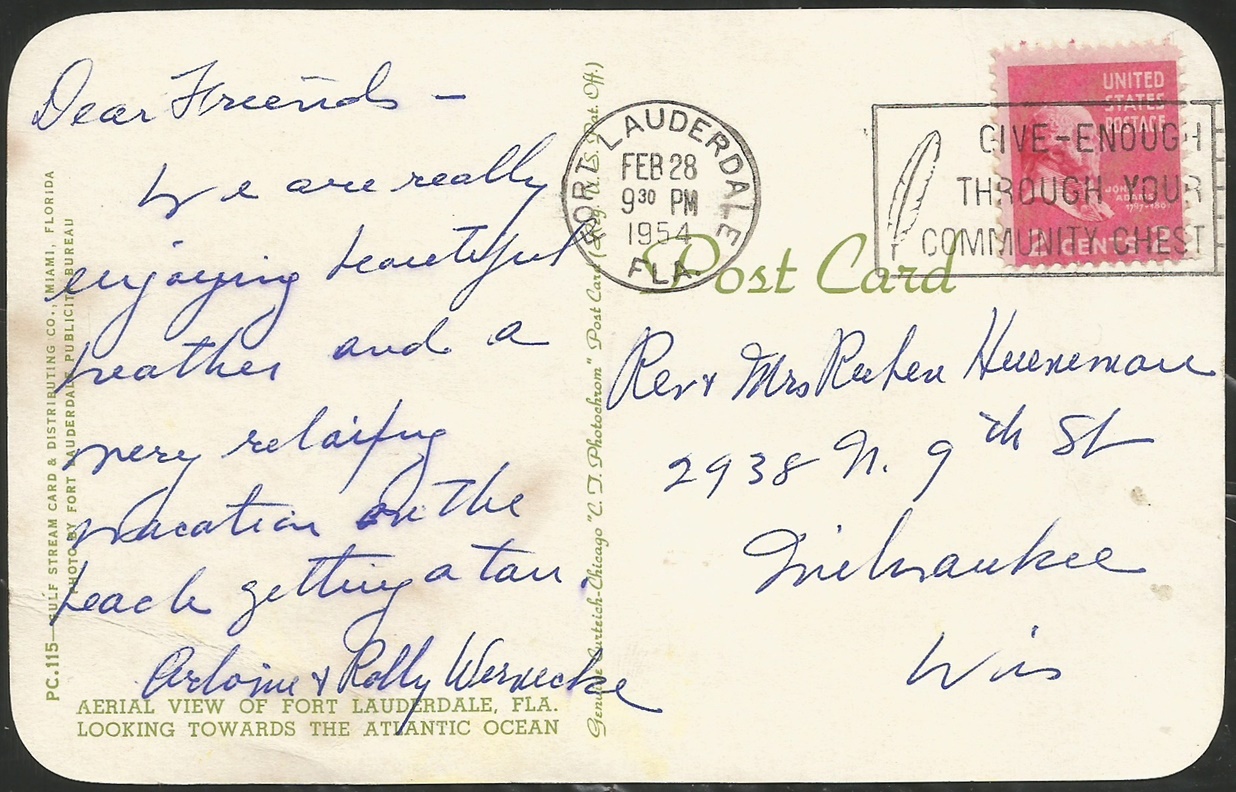 Dear Friends –
We are really
enjoying beautiful
weather and a
very relaxing
vacation on the
beach getting a tan.
& Rolly Wernecke
PC.115—GULF STREAM CARD & DISTRIBUTING CO., MIAMI, FLORIDA
PHOTO BY FORT LAUDERDALE PUBLICITY BUREAU
AERIAL VIEW OF FORT LAUDERDALE, FLA.
LOOKING TOWARDS THE ATLANTIC OCEAN
Genuine Curteich-Chicago "C. T. Photochrom" Post Card (Reg. U. S. Pat. Off.)
FORT LAUDERDALE
FEB 28
9 30 PM
1954
FLA.
GIVE-ENOUGH
THROUGH YOUR
COMMUNITY CHEST
UNITED
STATES
POSTAGE
JOHN
ADAMS
1797-1801
2 CENTS 2
Post Card
Rev & Mrs Reuben Hueneman
2938 N. 9th St
Milwaukee
Wis